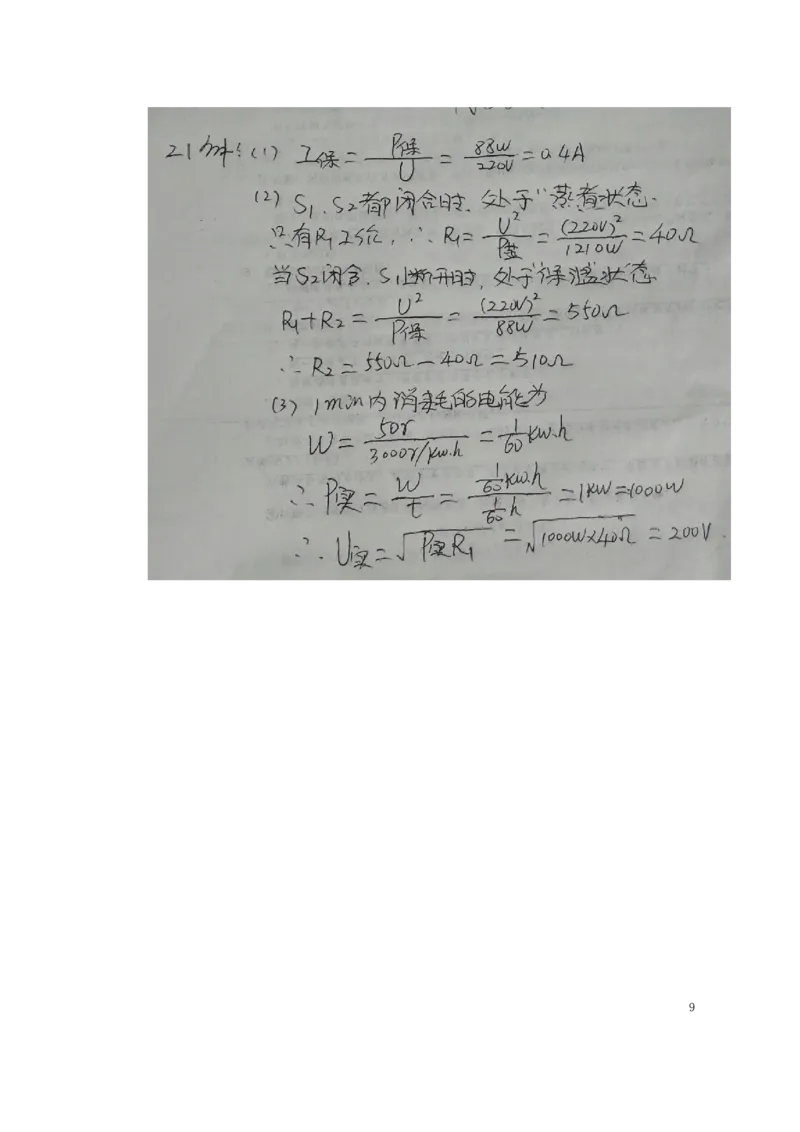 21解:(1) I保 = P保/U = 88W/220V = 0.4A
(2) S1、S2都闭合时,处于"蒸煮状态.
只有R1工作,∴R1 = U²/P蒸 = (220V)²/1210W = 40Ω
当S2闭合、S1断开时,处于"保温"状态
R1+R2 = U²/P保 = (220V)²/88W = 550Ω
∴R2 = 550Ω - 40Ω = 510Ω
(3) 1min内消耗的电能为
W = 50r/3000r/kw.h = 1/60 kw.h
∴P实 = W/t = 1/60 kw.h / 1/60 h = 1kW = 1000W
∴U实 = √P实R1 = √1000W×40Ω = 200V.
9